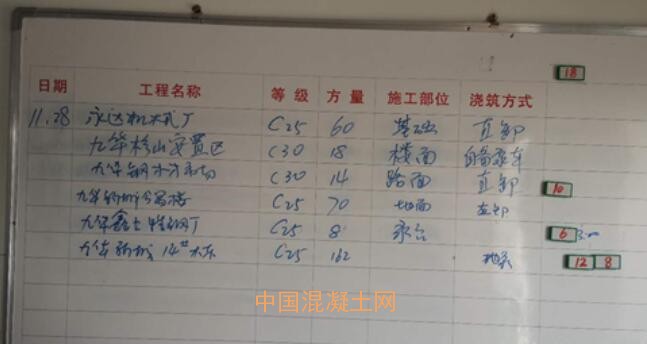 18
日期 工程名称 等级 方量 施工部位 浇筑方式
11.28 永达机械厂 C25 60 基础 直卸
九华杉山安置区 C30 18 楼面 自备泵车
九华钢材市场 C30 14 路面 直卸 10
九华 C25 70 地面 直卸
九华鑫 钢厂 C25 8 承台 6
九华 14# C25 162 地泵 12 8
中国混凝土网